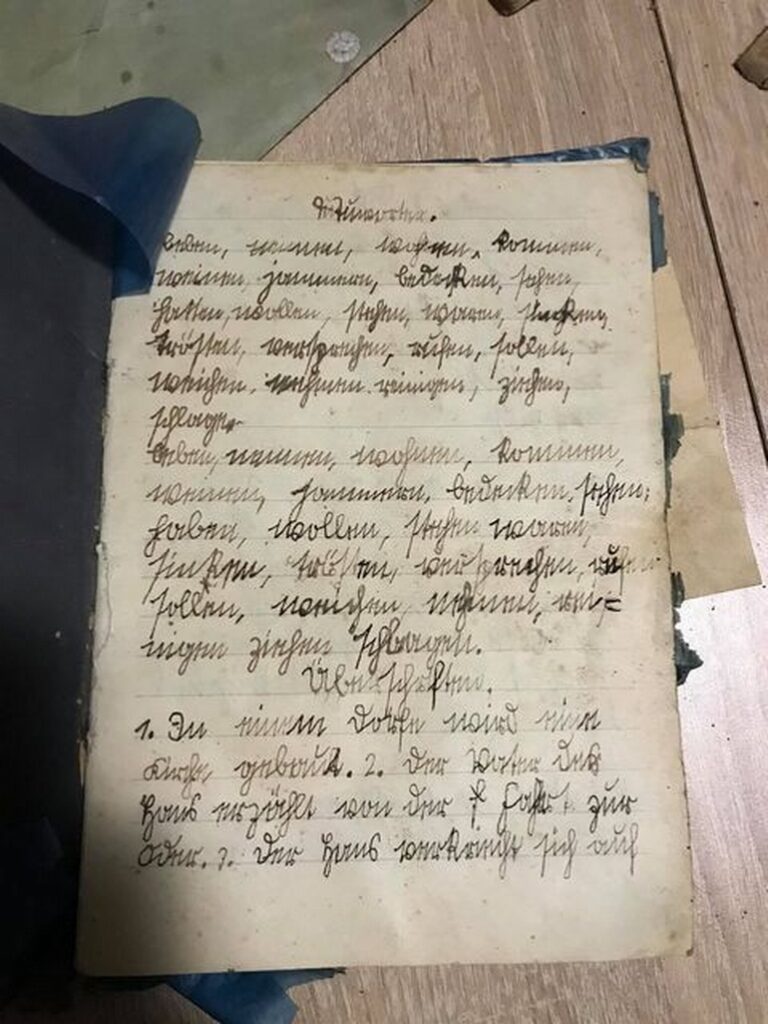 Tuworter.
leben, nennen, wohnen, kommen,
weinen, jammern, bedecken, sehen,
hatten, wollen, stehen, waren, sinken,
trösten, versprechen, rufen, sollen,
weichen. nehmen. reinigen, ziehen,
schlagen
leben, nennen, wohnen, kommen,
weinen, jammern, bedecken, sehen,
haben, wollen, stehen waren,
sinken, trösten, versprechen, rufen
sollen, weichen, nehmen, rei=
nigen ziehen schlagen.
Überschriften.
1. In einem Dorfe wird eine
Kirche gebaut. 2. Der Vater des
Hans erzählt von der Fahrt zur
Oder. 3. Der Hans verkriecht sich auf